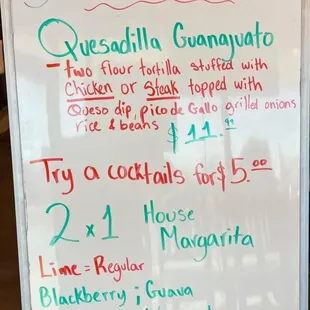 Quesadilla Guanajuato
- two flour tortilla stuffed with
Chicken or Steak topped with
Queso dip, pico de Gallo grilled onions
rice & beans $11.99
Try a cocktails for $5.00
2x1 House
Margarita
Lime = Regular
Blackberry ; Guava